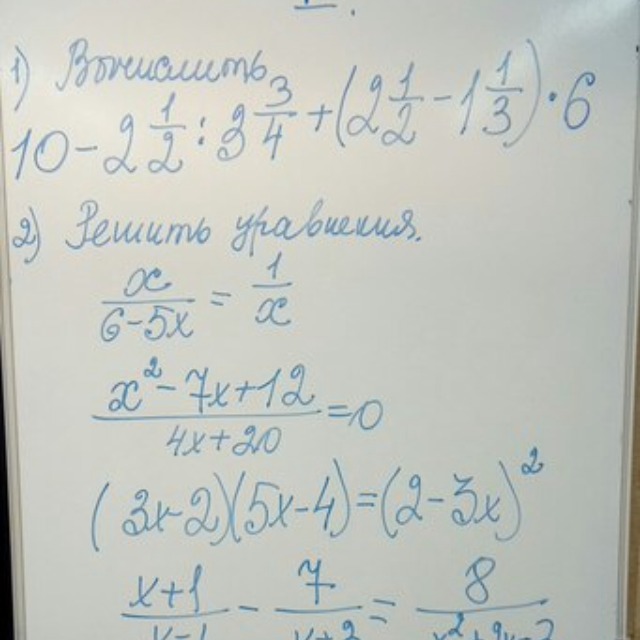 1) Вычислить
10 - 2 1/2 : 3 3/4 + (2 1/2 - 1 1/3) · 6
2) Решить уравнения.
x/(6-5x) = 1/x
(x² - 7x + 12)/(4x + 20) = 0
(3x-2)(5x-4) = (2-3x)²
(x+1)/(x-1) - 7/(x+3) = 8/(x²+2x-3)